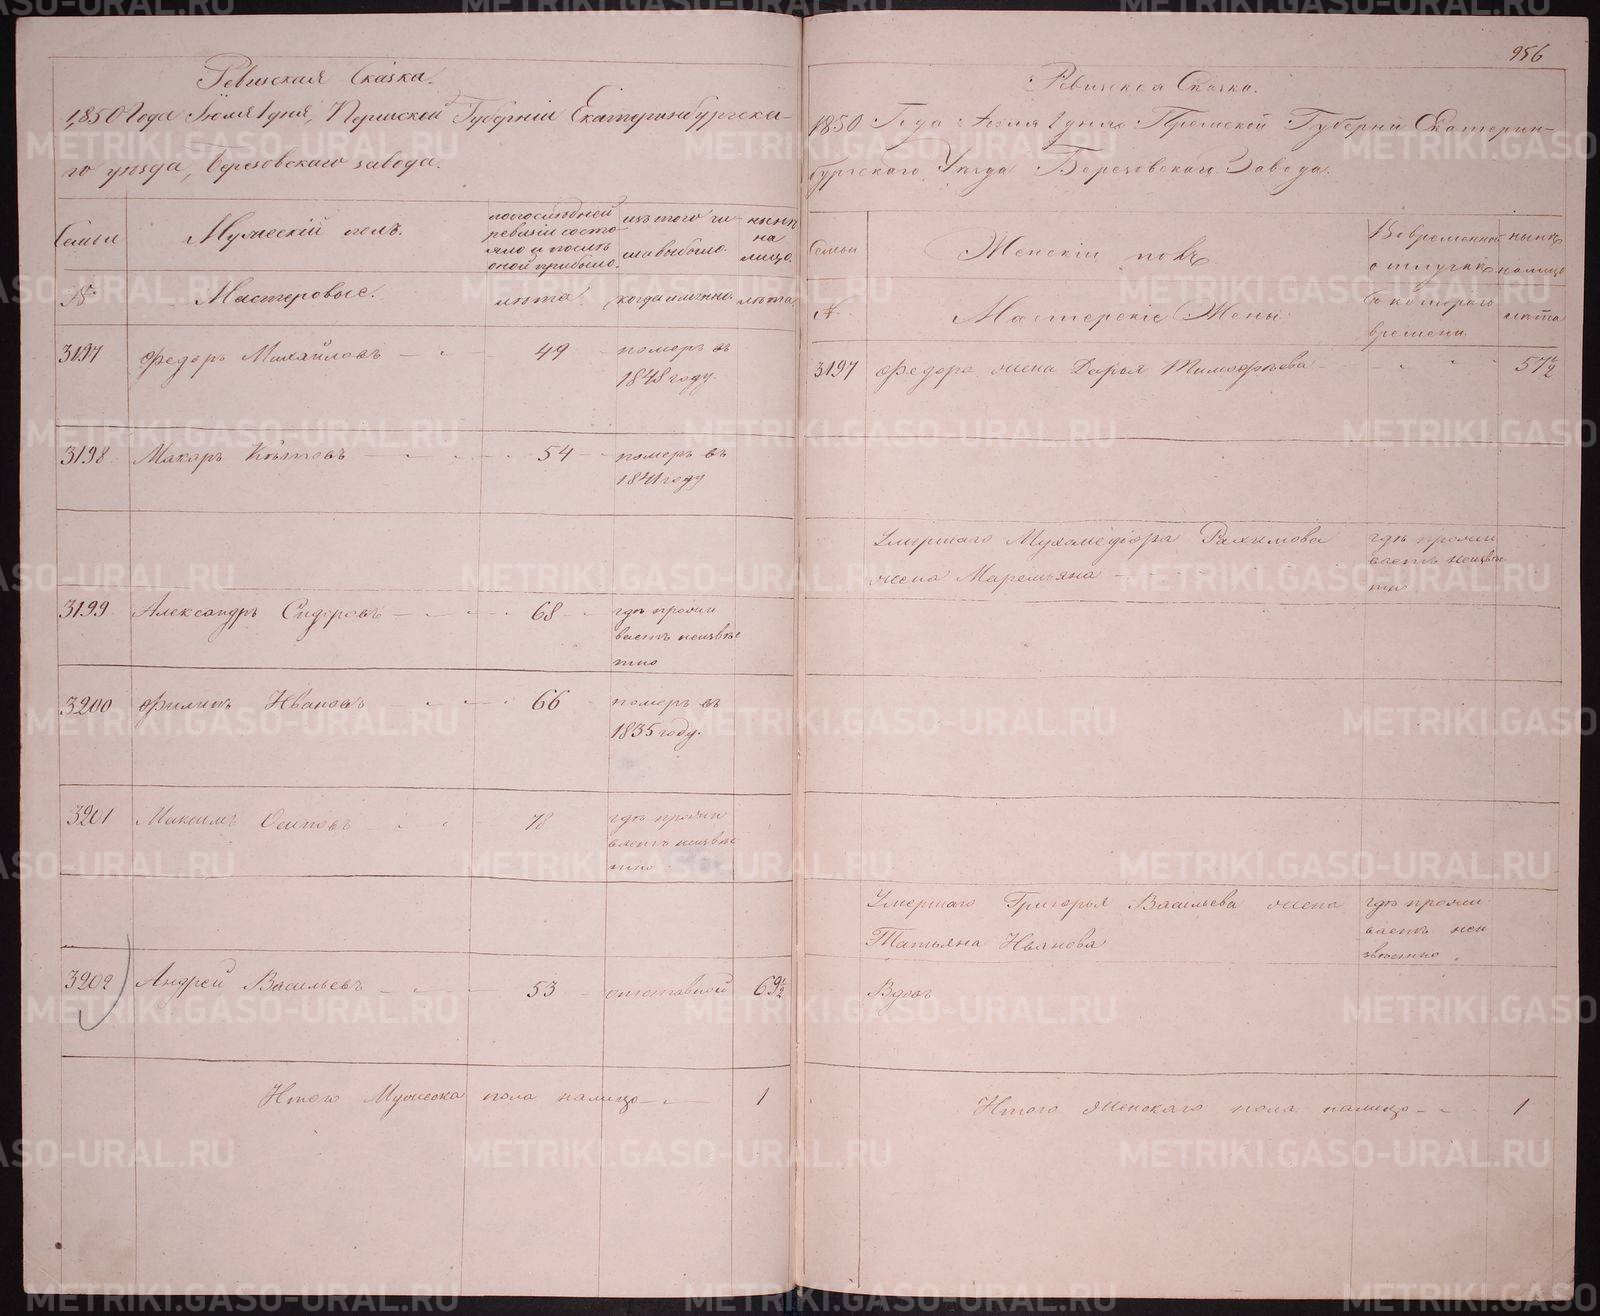 Ревизская Сказка.
1850 Года Июля 1 дня, Пермской Губерніи Екатеринбургска-
го уѣзда, Березовскаго завода.
Семьи
Мужескій полъ.
по последней
ревизіи состо-
яло и послѣ
оной прибыло.
изъ того чи-
сла выбыло.
нынѣ
на
лицо.
№
Мастеровые.
лѣта.
когда именно.
лѣта
3197 Федоръ Михайловъ 49 померъ въ
1848 году.
3198 Макаръ 54 померъ въ
1841 году
3199 Александръ Сидоровъ 68 гдѣ прожи
ваетъ неизвѣс
тно
3200 Филипъ Ивановъ 66 померъ въ
1835 году.
3201 Максимъ Осиповъ 78 гдѣ прожи
ваетъ неизвѣс
тно
3202 Андрей Васильевъ 53 отставной 69½
Итого Мужеска пола налицо 1
956
Ревизская Сказка.
1850 Года Июля 1 дня Пермской Губерніи Екатерин-
бургскаго Уѣзда Березовскаго Завода.
Семьи
Женскій полъ
Во временной
отлучкѣ
нынѣ
налицо
№
Мастерскіе Жены
Съ котораго
времени.
лѣта
3197 Федора жена Дарья Тимофѣева 57½
Умершаго Рахимова
жена Маремьяна
гдѣ прожи
ваетъ неизвѣс
тно.
Умершаго Григорья Васильева жена
Татьяна Иванова
гдѣ прожи
ваетъ неи
звѣстно.
Вдовъ
Итого женскаго пола налицо 1
METRIKI.GASO-URAL.RU